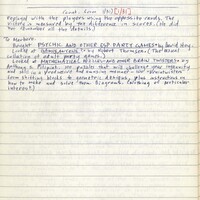 replayed with the players using the opposite cards. The
victory is measured by the difference in scores. (He did
not remember all the details.)
To Harbors.
Bought PSYCHIC AND OTHER ESP PARTY GAMES by David Hoy.
Looked at GAMES by Robert Thomson.
collection of adult party games.)
Looked at MATHEMATICAL PUZZLES AND OTHER BRAIN TWISTERS by
Anthony S. Filipiak. 100 puzzles that will challenge your ingenuity
and skill in a professional and amusing manner - with
from sliding blocks to geometric designs. Plus instructions on
how to make and solve them. Diagrams. (Nothing of particular
interest.)